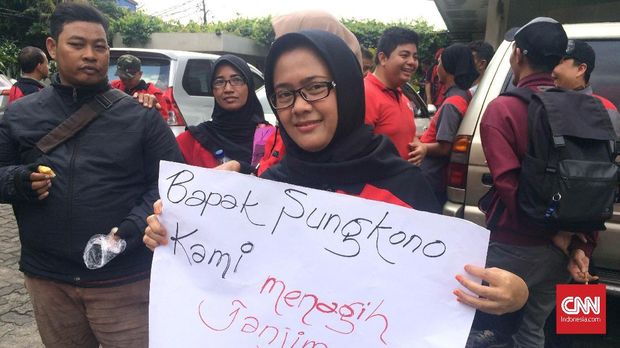 Bapak Sungkono
Kami
menagih
Janjim
CNN
Indonesia.com